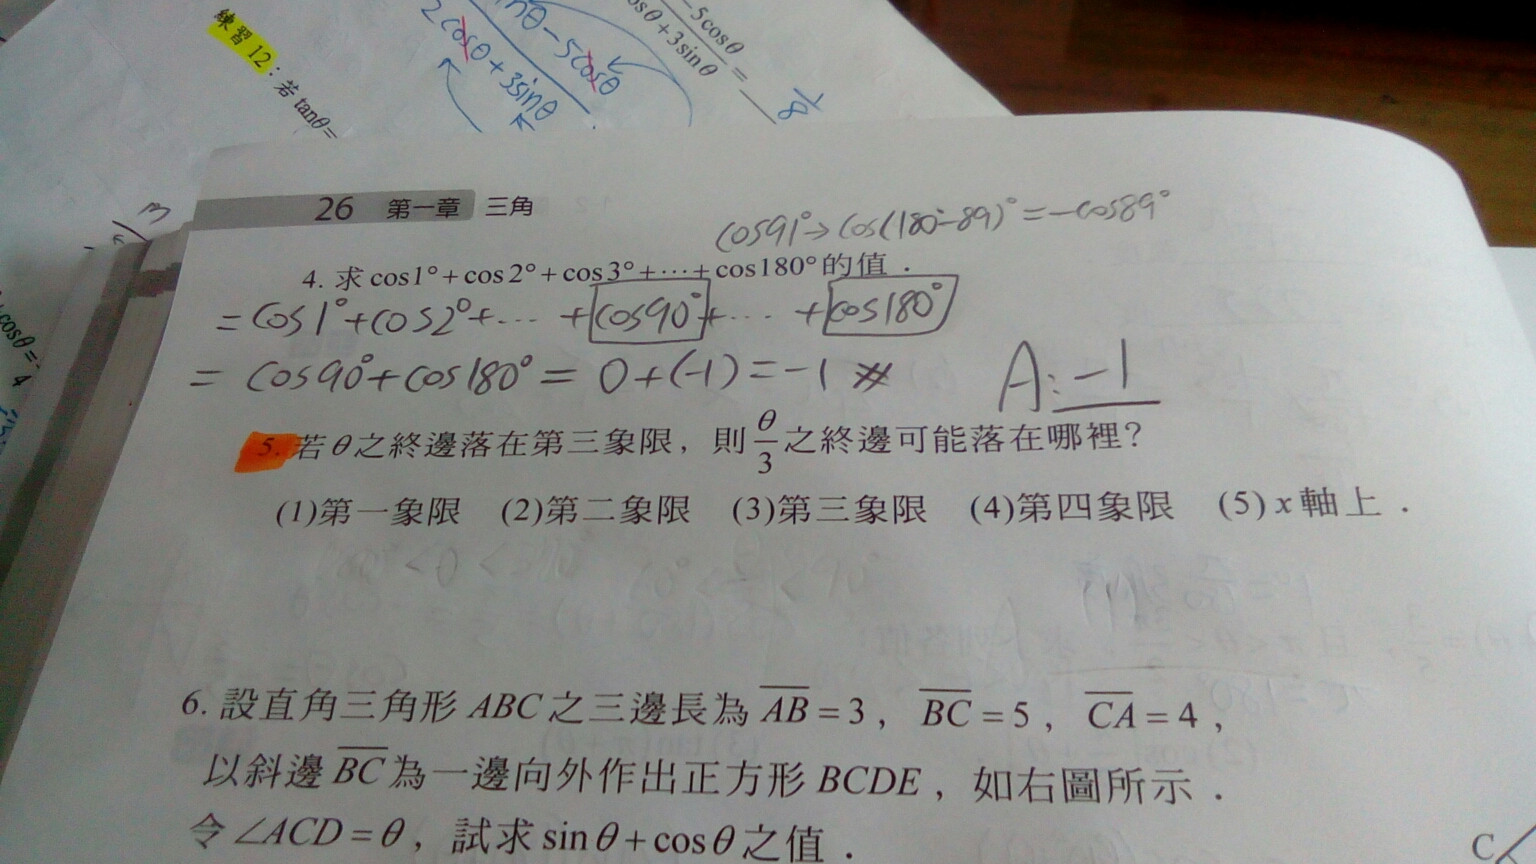 練習 12：若 tanθ=
2cosθ+3sinθ
sinθ-5cosθ
-5cosθ
osθ+3sinθ
=
1/8
26 第一章 三角
cos91°→cos(180°-89)°=-cos89°
4. 求 cos1°+cos2°+cos3°+⋯+cos180°的值．
=cos1°+cos2°+⋯+cos90°+⋯+cos180°
= cos90°+cos180°= 0+(-1)=-1 ※
A:-1
5. 若θ之終邊落在第三象限，則 θ/3 之終邊可能落在哪裡？
(1)第一象限 (2)第二象限 (3)第三象限 (4)第四象限 (5) x 軸上．
6. 設直角三角形 ABC 之三邊長為 A̅B̅=3，B̅C̅=5，C̅A̅=4，
以斜邊 B̅C̅ 為一邊向外作出正方形 BCDE，如右圖所示．
令∠ACD=θ，試求 sinθ+cosθ之值．
C